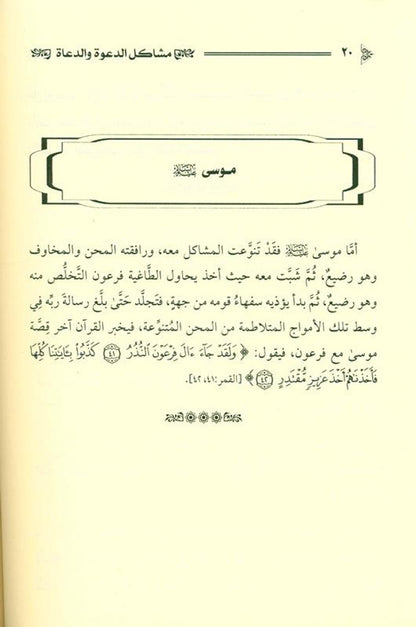 ٢٠ مشاكل الدعوة والدعاة
موسى عليه السلام
أمَّا موسىٰ عليه السلام فقَدْ تَنوَّعت المشاكل معه، ورافقته المحن والمخاوف
وهو رضيعٌ، ثُمَّ شَبَّت معه حيث أخذ يحاول الطَّاغية فرعون التَّخلُّص منه
وهو رضيعٌ، ثُم بدأ يؤذيه سفهاءُ قومه من جهةٍ، فتَجلَّد حَتَّىٰ بلَّغ رسالةَ ربِّه فِي
وسط تلك الأمواج المتلاطمة من المحن المُتنوِّعة، فيخبر القرآن آخر قِصَّة
موسىٰ مع فرعون، فيقول: ﴿ وَلَقَدْ جَآءَ ءَالَ فِرْعَوْنَ النُّذُرُ ٤١ كَذَّبُوا۟ بِـَٔايَٰتِنَا كُلِّهَا
فَأَخَذْنَٰهُمْ أَخْذَ عَزِيزٍ مُّقْتَدِرٍ ٤٢ ﴾ [القمر:٤١، ٤٢].